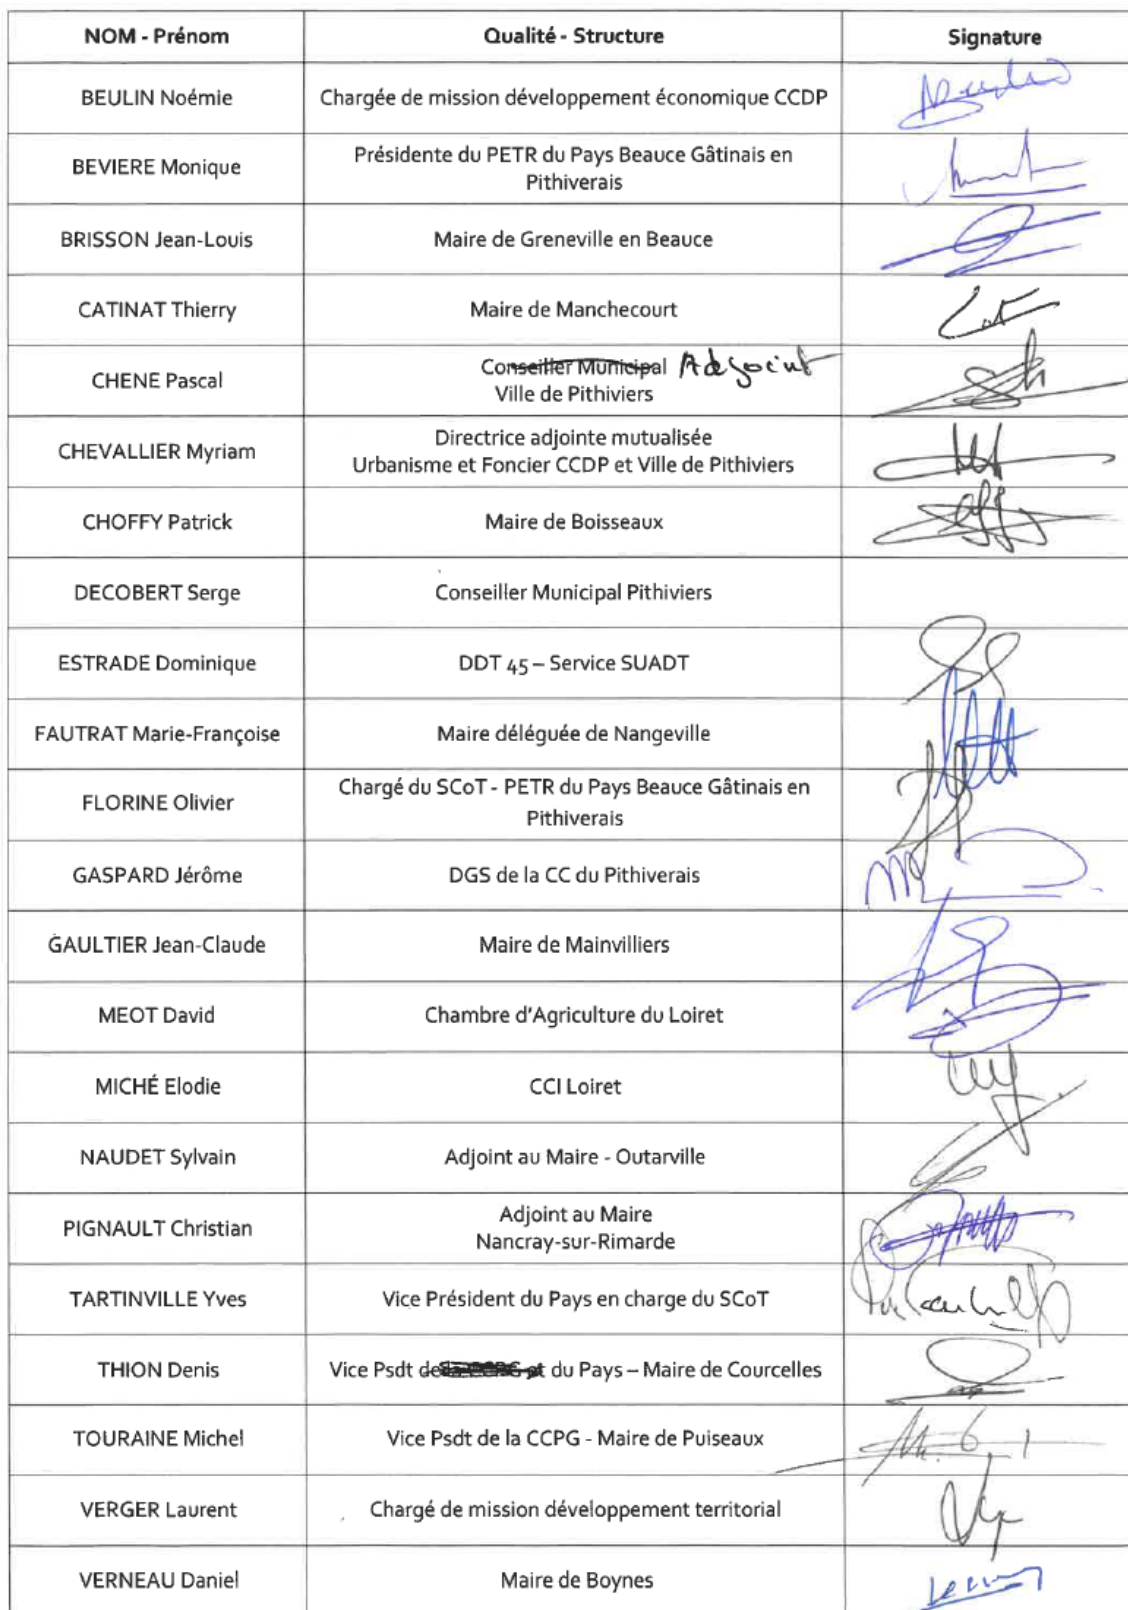 NOM - Prénom Qualité - Structure Signature
BEULIN Noémie Chargée de mission développement économique CCDP
BEVIERE Monique Présidente du PETR du Pays Beauce Gâtinais en
Pithiverais
BRISSON Jean-Louis Maire de Greneville en Beauce
CATINAT Thierry Maire de Manchecourt
CHENE Pascal Conseiller Municipal Adjoint
Ville de Pithiviers
CHEVALLIER Myriam Directrice adjointe mutualisée
Urbanisme et Foncier CCDP et Ville de Pithiviers
CHOFFY Patrick Maire de Boisseaux
DECOBERT Serge Conseiller Municipal Pithiviers
ESTRADE Dominique DDT 45 – Service SUADT
FAUTRAT Marie-Françoise Maire déléguée de Nangeville
FLORINE Olivier Chargé du SCoT - PETR du Pays Beauce Gâtinais en
Pithiverais
GASPARD Jérôme DGS de la CC du Pithiverais
GAULTIER Jean-Claude Maire de Mainvilliers
MEOT David Chambre d'Agriculture du Loiret
MICHÉ Elodie CCI Loiret
NAUDET Sylvain Adjoint au Maire - Outarville
PIGNAULT Christian Adjoint au Maire
Nancray-sur-Rimarde
TARTINVILLE Yves Vice Président du Pays en charge du SCoT
THION Denis Vice Psdt de la CCPG et du Pays – Maire de Courcelles
TOURAINE Michel Vice Psdt de la CCPG - Maire de Puiseaux
VERGER Laurent Chargé de mission développement territorial
VERNEAU Daniel Maire de Boynes